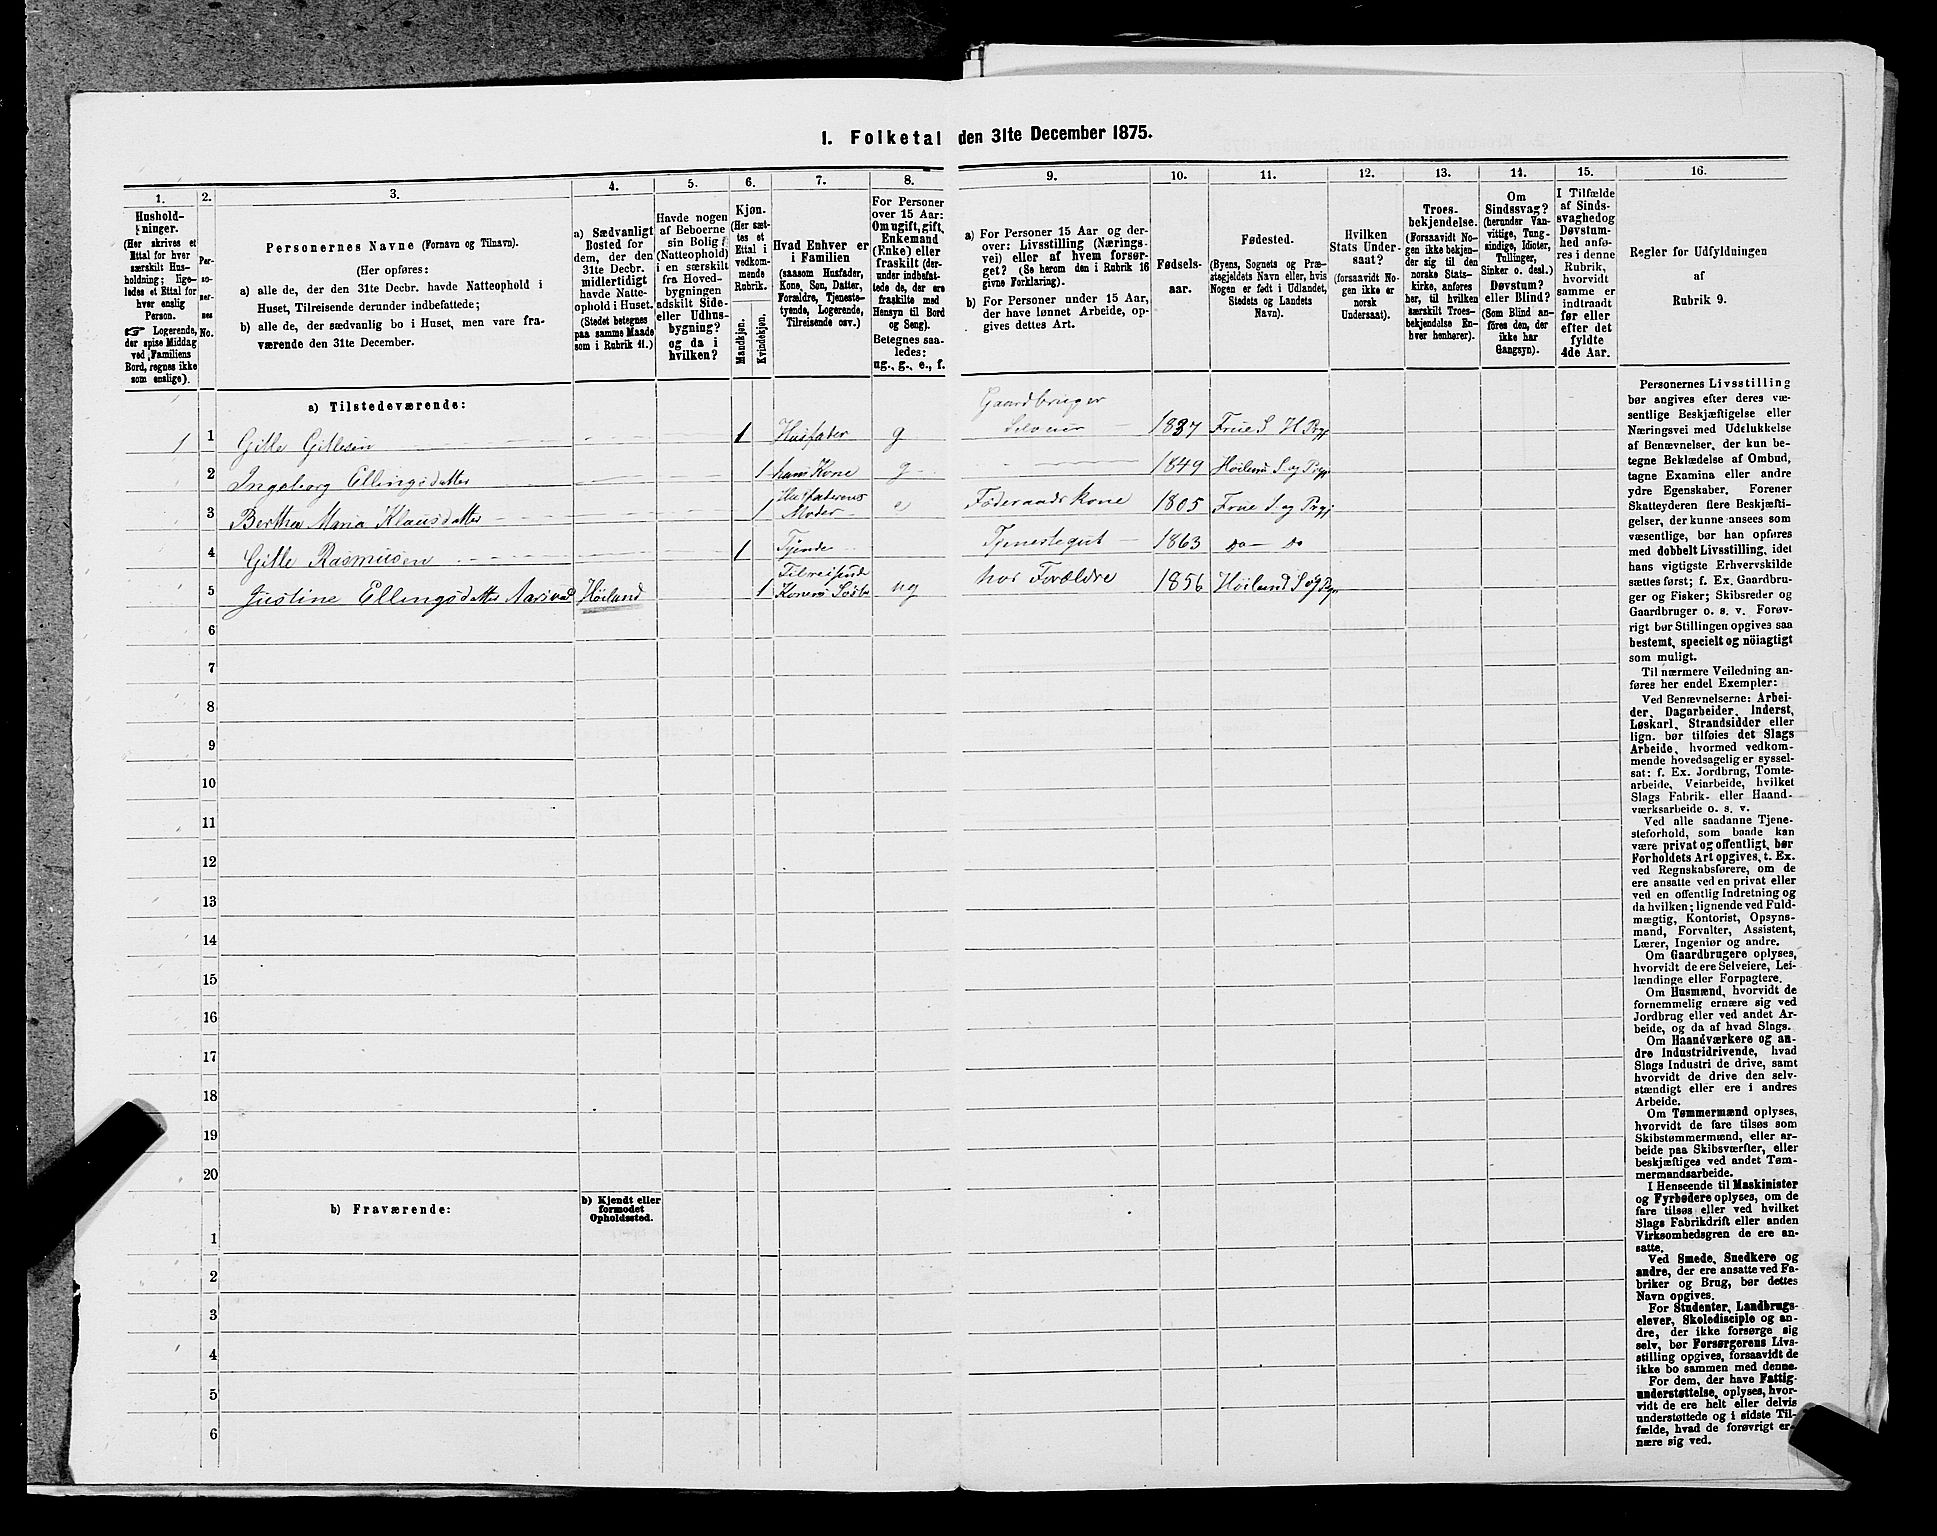 1. Folketal den 31te December 1875.
1.
Hushold-
ninger.
(Her skrives et
Ettal for hver
særskilt Hus-
holdning; lige-
ledes et Ettal for
hver enslig
Person.
☞ Logerende,
der spise Middag
ved Familiens
Bord, regnes ikke
som enslige).
2.
Per-
so-
ner-
nes
No.
3.
Personernes Navne (Fornavn og Tilnavn).
(Her opføres:
a) alle de, der den 31te Decbr. havde Natteophold i
Huset, Tilreisende derunder indbefattede;
b) alle de, der sædvanlig bo i Huset, men vare fra-
værende den 31te December.
4.
a) Sædvanligt
Bosted for
dem, der den
31te Decbr.
midlertidigt
havde Natte-
ophold i Huset.
(Stedet betegnes
paa samme Maade
som i Rubrik 11.)
5.
Havde nogen
af Beboerne
sin Bolig
(Natteophold)
i en særskilt
fra Hoved-
bygningen
adskilt Side-
eller Udhus-
bygning?
og da i
hvilken?
6.
Kjøn.
(Her sæt-
tes et
Ettal i
vedkom-
mende
Rubrik.
Mandkjøn.
Kvindekjøn.
7.
Hvad Enhver er
i Familien
(saasom Husfader,
Kone, Søn, Datter,
Forældre, Tjeneste-
tyende, Logerende,
Tilreisende osv.)
8.
For Personer
over 15 Aar:
Om ugift, gift,
Enkemand
(Enke) eller
fraskilt (der-
under indbefat-
tede de, der ere
fraskilte med
Hensyn til Bord
og Seng).
Betegnes saa-
ledes:
ug., g., e., f.
9.
a) For Personer 15 Aar og der-
over: Livsstilling (Nærings-
vei) eller af hvem forsør-
get? (Se herom den i Rubrik 16
givne Forklaring).
b) For Personer under 15 Aar,
der have lønnet Arbeide, op-
gives dettes Art.
10.
Fødsels-
aar.
11.
Fødested.
(Byens, Sognets og Præ-
stegjeldets Navn eller, hvis
Nogen er født i Udlandet,
Stedets og Landets
Navn).
12.
Hvilken
Stats Under-
saat?
(forsaavidt No-
gen ikke er
norsk
Undersaat).
13.
Troes-
bekjendelse.
(Forsaavidt No-
gen ikke bekjen-
der sig til den
norske Stats-
kirke, anføres
her, til hvilken
særskilt Troes-
bekjendelse En-
hver henhører).
14.
Om
Sindssvag?
(herunder Van-
vittige, Tung-
sindige, Idioter,
Tullinger,
Sinker o. desl.)
Døvstum?
eller Blind?
(Som Blind an-
føres den, der
ikke har
Gangsyn).
15.
I Tilfælde
af Sinds-
svaghed og
Døvstum-
hed anfø-
res i denne
Rubrik,
hvorvidt
samme er
indtraadt
før eller
efter det
fyldte
4de Aar.
16.
Regler for Udfyldningen
af
Rubrik 9.
a) Tilstedeværende:
1 1 Gitle Gitlesen 1 Husfader g Gaardbruger
Selveier 1837 Frue S H Prgj
2 Ingeborg Ellingsdatter 1 hans Kone g 1849 Höiland S og Prgj
3 Bertha Maria Klausdatter 1 Husfaderens
Moder e Föderaadskone 1805 Frue S og Prgj
4 Gitle Rasmusen 1 Tjende Tjenestegut 1863 Do Do
5 Justine Ellingsdatter Höiland 1 Tilreisende
Konens ug hos Forældre 1856 Höiland S og Prgj
6
7
8
9
10
11
12
13
14
15
16
17
18
19
20
b) Fraværende:
b) Kjendt eller
formodet
Opholdssted.
1
2
3
4
5
6
Personernes Livsstilling
bør angives efter deres væ-
sentlige Beskjæftigelse eller
Næringsvei med Udelukkelse
af Benævnelser, der kun be-
tegne Beklædelse af Ombud,
tagne Examina eller andre
ydre Egenskaber. Forener
Skatteyderen flere Beskjæfti-
gelser, der kunne ansees som
væsentlige, bør han opføres
med dobbelt Livsstilling, idet
hans vigtigste Erhvervskilde
sættes først; f. Ex. Gaardbru-
ger og Fisker; Skibsreder og
Gaardbruger o. s. v. Forøv-
rigt bør Stillingen opgives saa
bestemt, specielt og nöiagtigt
som muligt.
Til nærmere Veiledning an-
føres her endel Exempler:
Ved Benævnelserne: Arbei-
der, Dagarbeider, Inderst,
Løskarl, Strandsidder eller
lign. bør tilføies det Slags
Arbeide, hvormed vedkom-
mende hovedsagelig er syssel-
sat: f. Ex. Jordbrug, Tomte-
arbeide, Veiarbeide, hvilket
Slags Fabrik- eller Haand-
værksarbeide o. s. v.
Ved alle saadanne Tjene-
steforhold, som baade kan
være privat og offentligt, bør
Forholdets Art opgives, t. Ex.
ved Regnskabsførere, om de
ere ansatte ved en privat eller
ved en offentlig Indretning og
da hvilken; lignende ved Fuld-
mægtig, Kontorist, Opsyns-
mand, Forvalter, Assistent,
Lærer, Ingeniør og andre.
Om Gaardbrugere oplyses,
hvorvidt de ere Selveiere, Lei-
lændinge eller Forpagtere.
Om Husmænd, hvorvidt de
fornemmelig ernære sig ved
Jordbrug eller ved andet Ar-
beide, og da af hvad Slags.
Om Haandværkere og an-
dre Industridrivende, hvad
Slags Industri de drive, samt
hvorvidt de drive den selv-
stændigt eller ere i andres
Arbeide.
Om Tømmermænd oplyses,
hvorvidt de fare tilsøs som
Skibstømmermænd, eller ar-
beide paa Skibsværfter, eller
beskjæftiges ved andet Tøm-
mermandsarbeide.
I Henseende til Maskinister
og Fyrbødere oplyses, om de
fare tilsøs eller ved hvilket
Slags Fabrikdrift eller anden
Virksomhedsgren de ere an-
satte.
Ved Smede, Snedkere og
andre, der ere ansatte ved Fa-
briker og Brug, bør dettes
Navn opgives.
For Studenter, Landbrugs-
elever, Skoledisciple og an-
dre, der ikke forsørge sig
selv, bør Forsørgerens Livs-
stilling opgives, forsaavidt de
ikke bo sammen med denne.
For dem, der have Fattig-
understøttelse, oplyses, hvor-
vidt de ere helt eller delvis
understøttede og i sidste Til-
fælde, hvad de forøvrigt er-
nære sig ved.